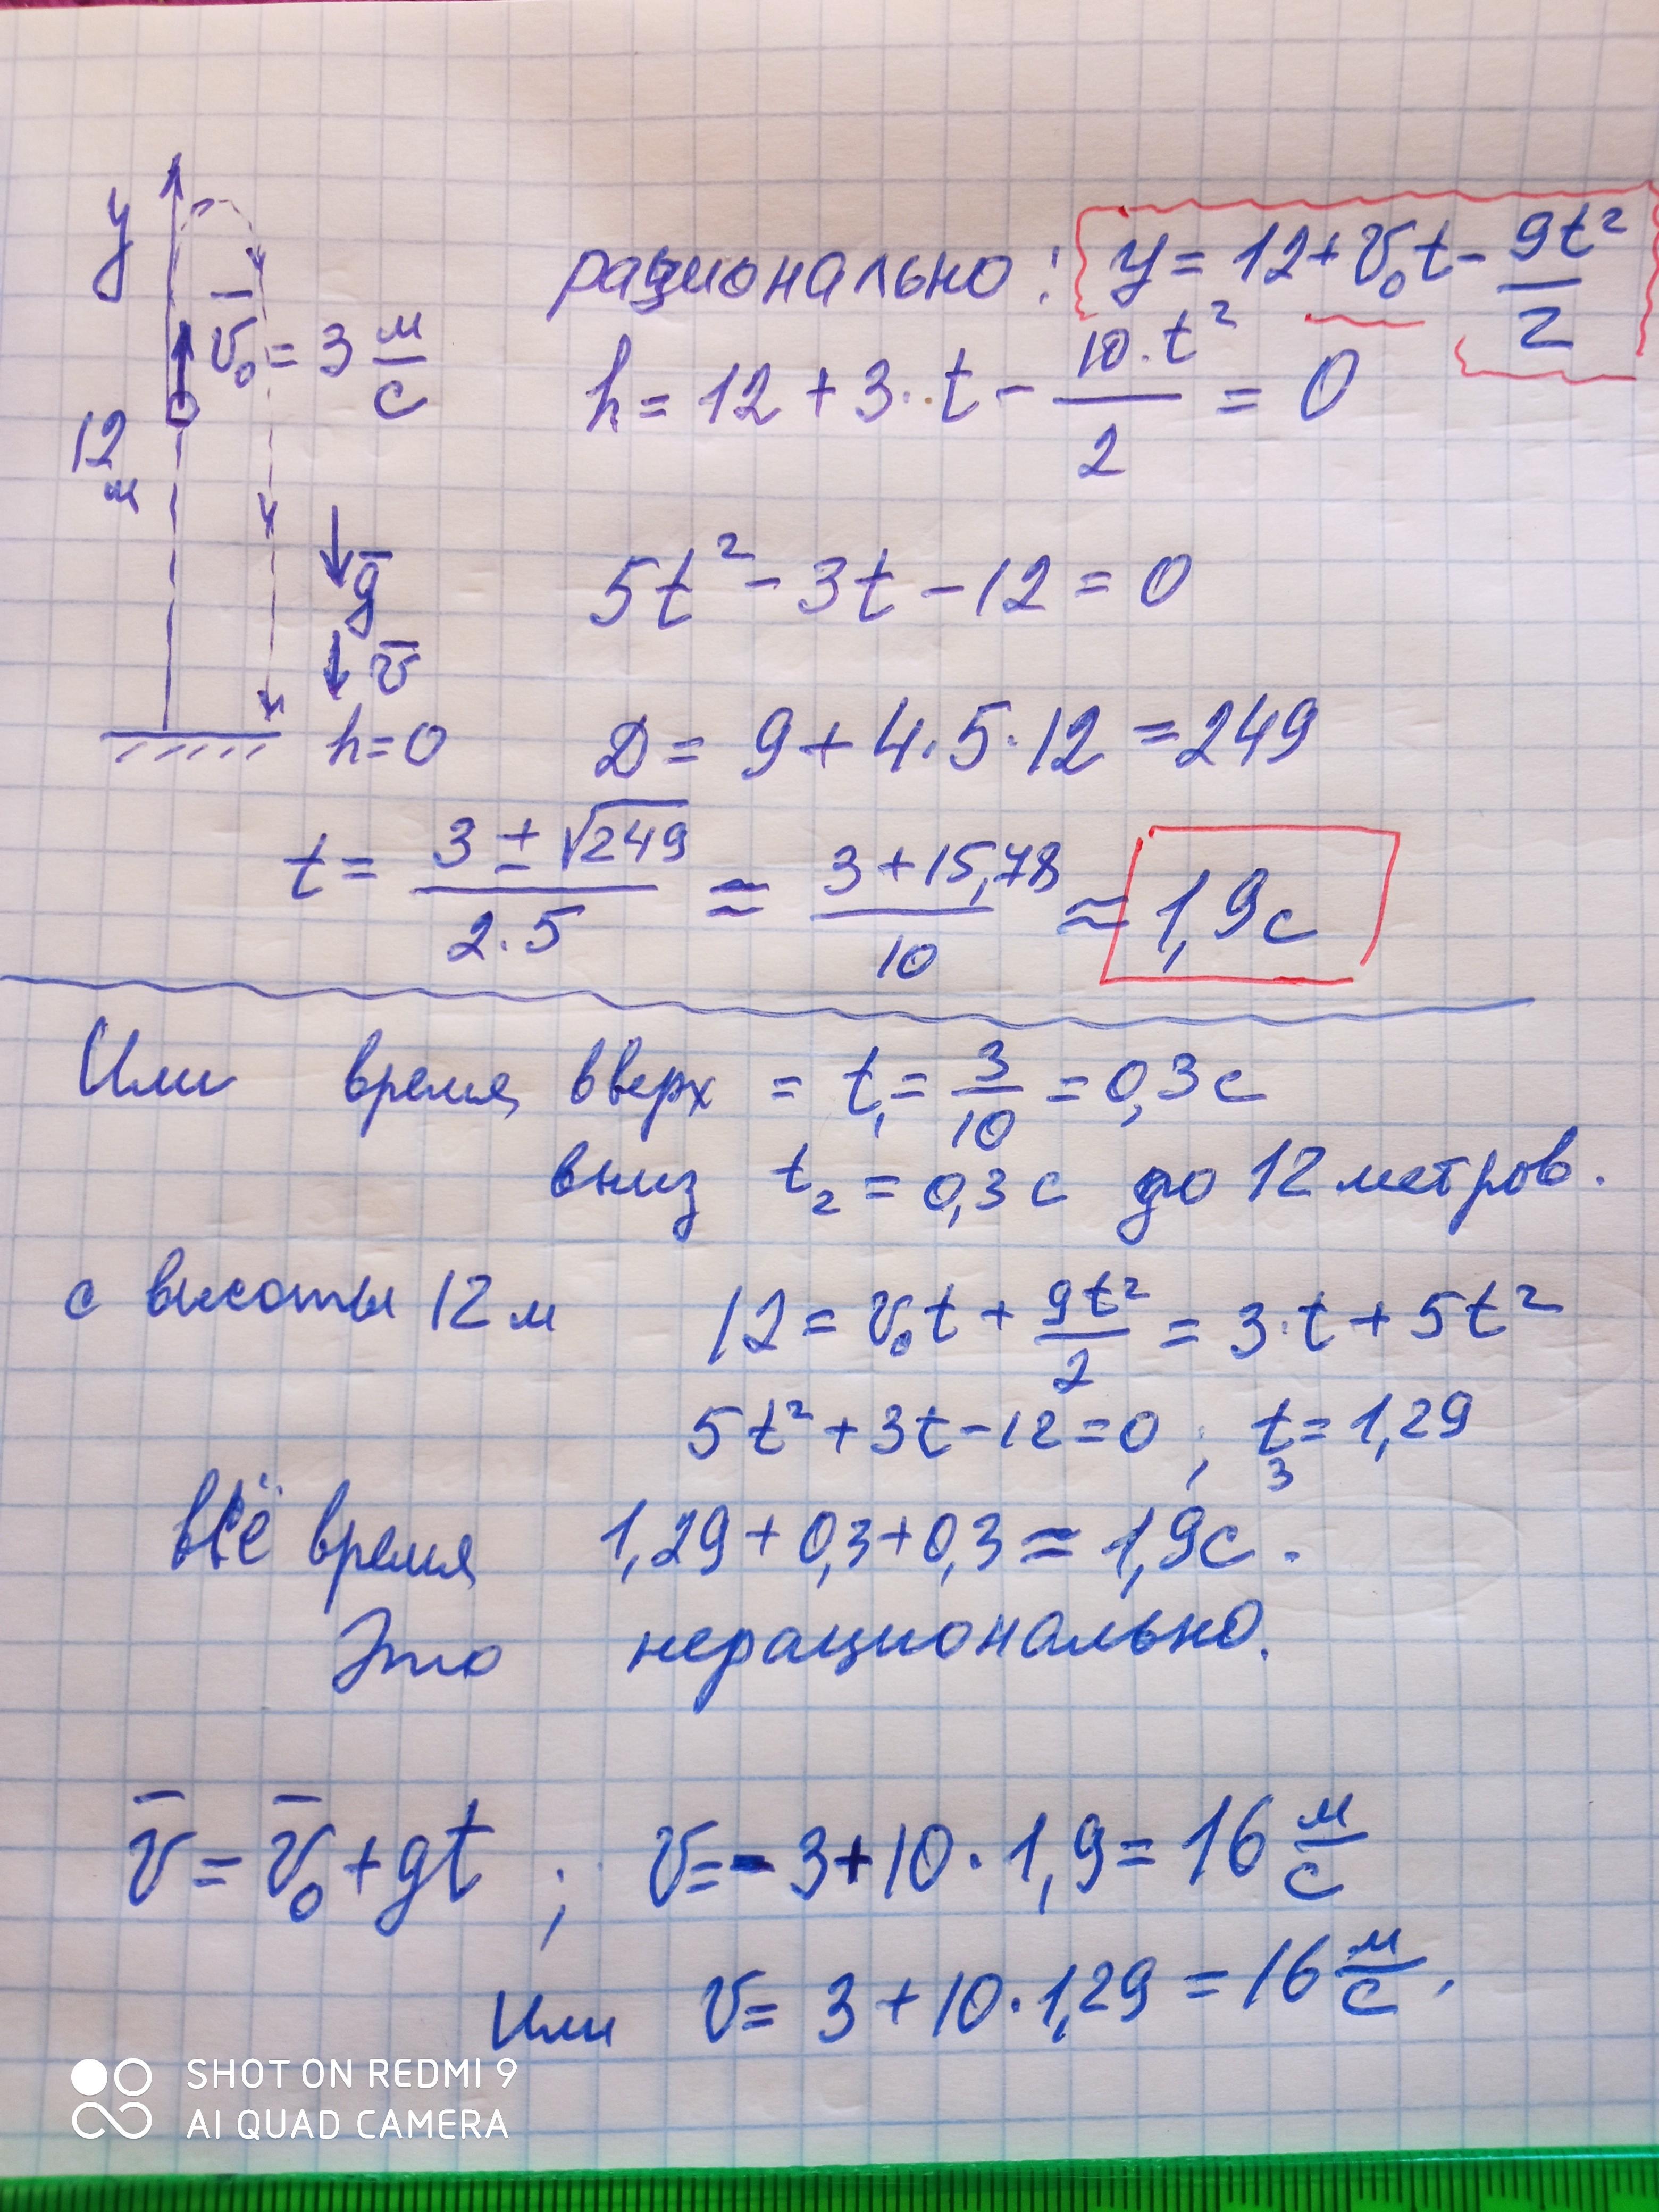 y
v̅₀ = 3 м/с
12 м
g̅
v̅
h=0
рационально: y = 12 + v₀t - gt²/2
h = 12 + 3·t - 10·t²/2 = 0
5t² - 3t - 12 = 0
D = 9 + 4·5·12 = 249
t = (3 ± √249)/(2·5) ≈ (3 + 15,78)/10 ≈ 1,9 с
Или время вверх = t₁ = 3/10 = 0,3 с
вниз t₂ = 0,3 с до 12 метров.
с высоты 12 м 12 = v₀t + gt²/2 = 3·t + 5t²
5t² + 3t - 12 = 0 ; t₃ = 1,29
всё время 1,29 + 0,3 + 0,3 ≈ 1,9 с.
Это нерационально.
v̅ = v̅₀ + gt ; v = - 3 + 10·1,9 = 16 м/с
Или v = 3 + 10·1,29 = 16 м/с.
SHOT ON REDMI 9
AI QUAD CAMERA